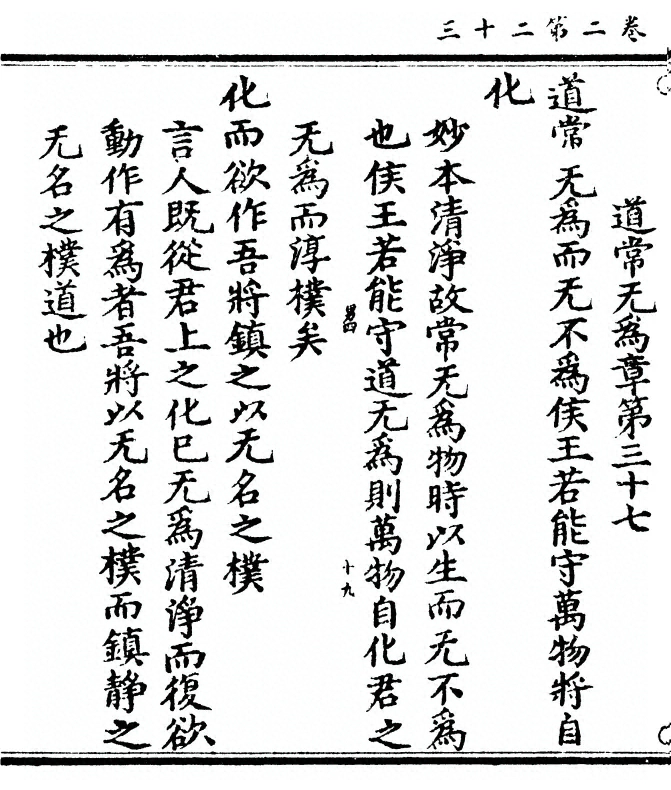 三十二第二卷
道常无爲章第三十七
道常无爲而无不爲侯王若能守萬物將自
化
妙本清淨故常无爲物時以生而无不爲
也侯王若能守道无爲則萬物自化君之
十九
无爲而淳樸矣
化而欲作吾將鎮之以无名之樸
言人既從君上之化巳无爲清淨而復欲
動作有爲者吾將以无名之樸而鎮静之
无名之樸道也